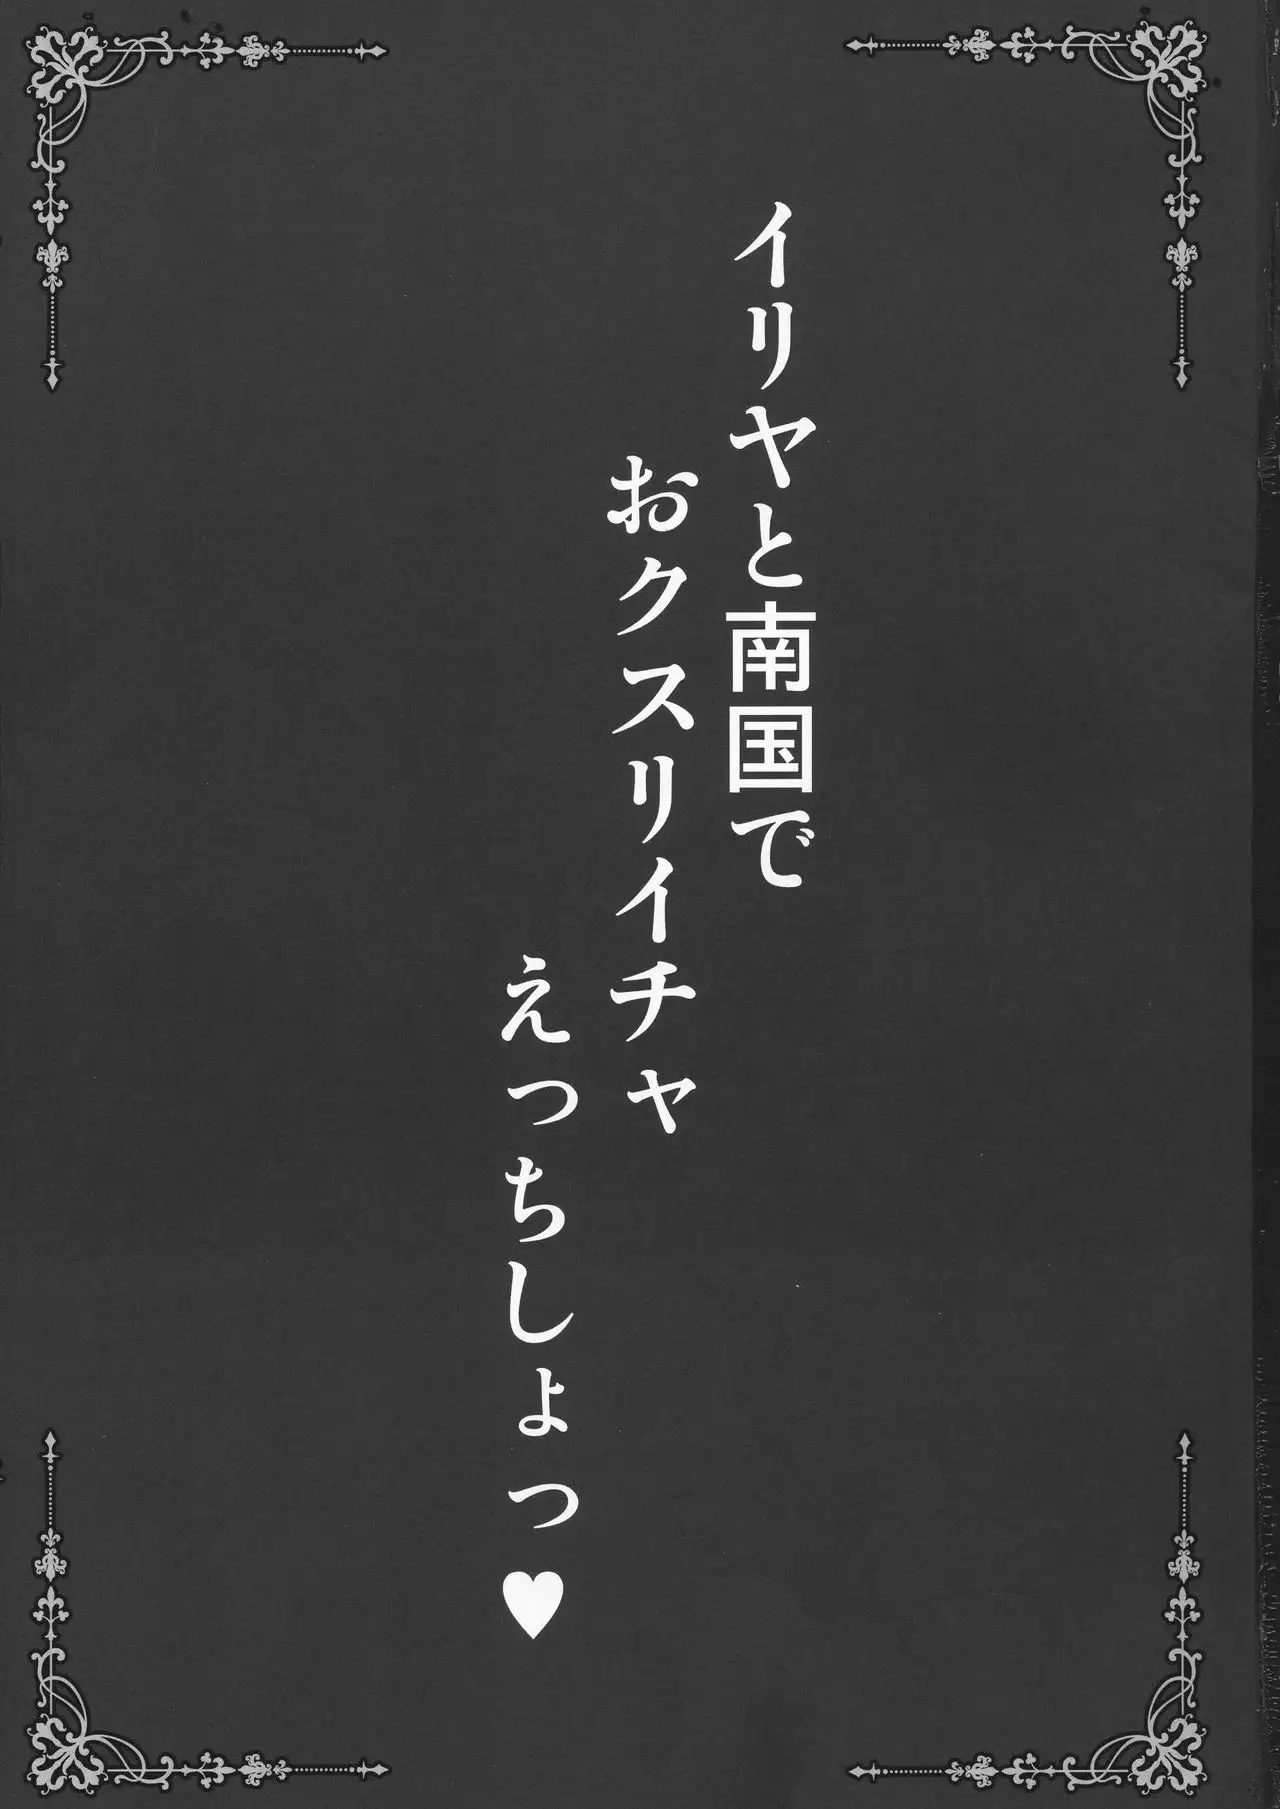 イリヤと南国で
おクスリイチャ
えっちしょっ♥